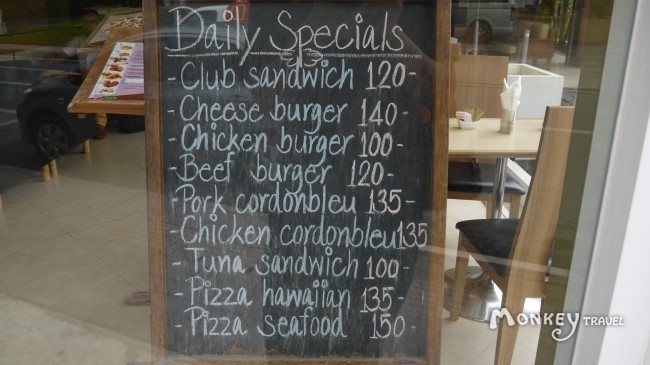 Daily Specials
-Club sandwich 120-
-Cheese burger 140-
-Chicken burger 100-
-Beef burger 120-
-Pork cordonbleu 135-
-Chicken cordonbleu 135
-Tuna sandwich 100-
-Pizza hawaiian 135-
-Pizza seafood 150-
MONKEY TRAVEL